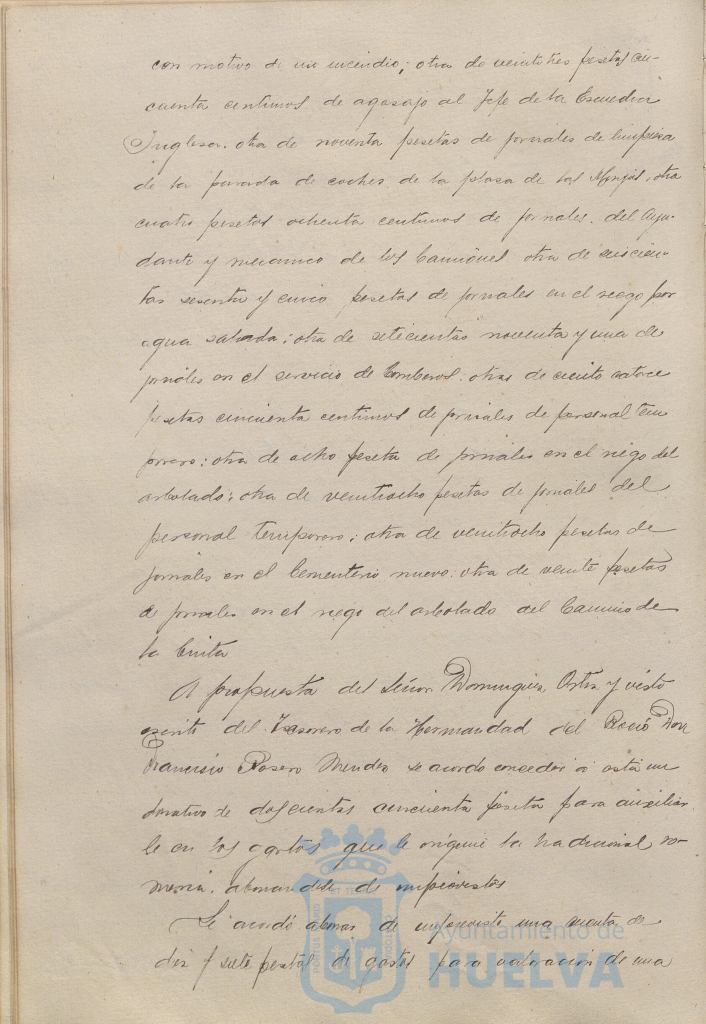 con motivo de un incendio; otra de veintitres pesetas cin-
cuenta centimos de agasajo al Jefe de la Escuadra
Inglesa. otra de noventa pesetas de jornales de limpieza
de la parada de coches de la plaza de las Monjas, otra
cuatro pesetas ochenta centimos de jornales. del Ayu-
dante y mecanico de los Camiones otra de seiscien-
tas sesenta y cinco pesetas de jornales en el riego por
agua salada; otra de setecientas noventa y una de
jornales en el servicio de Bomberos. otras de ciento catorce
pesetas cincuenta centimos de jornales de personal tem
porero; otra de ocho peseta de jornales en el riego del
arbolado; otra de veintiocho pesetas de jornales del
personal temporero; otra de veintiocho pesetas de
jornales en el Cementerio nuevo. otra de veinte pesetas
de jornales en el riego del arbolado del Camino de
la Cinta
A propuesta del Señor Dominguez Ortiz y visto
escrito del Tesorero de la Hermandad del Rocio Don
Francisco Rosero Mendez se acordo conceder a esta un
donativo de doscientas cincuenta peseta para auxiliar
le en los gastos que le origine la tradicional ro-
meria. abonandole de imprevistos
Se acordó abonar de imprevisto una cuenta de
diez y siete pesetas de gastos para valoracion de una
Ayuntamiento de
HUELVA